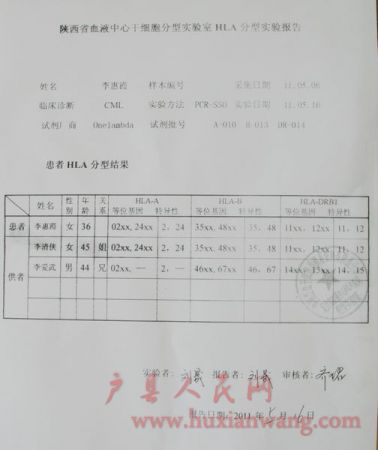 陕西省血液中心干细胞分型实验室 HLA 分型实验报告
姓名 李惠霞 样本编号 采集日期 11.05.06
临床诊断 CML 实验方法 PCR-SSO 实验日期 11.05.10
试剂厂商 Onelambda 试剂批号 A-010 B-013 DR-014
患者 HLA 分型结果
姓名 性别 年龄 关系 HLA-A HLA-B HLA-DRB1
等位基因 特异性 等位基因 特异性 等位基因 特异性
患者 李惠霞 女 36 02xx, 24xx 2, 24 35xx, 48xx 35, 48 11xx, 12xx 11, 12
供者 李清侠 女 45 姐 02xx, 24xx 2, 24 35xx, 48xx 35, 48 11xx, 12xx 11, 12
李爱武 男 44 兄 02xx, — 2, — 46xx, 67xx 46, 67 14xx, 15xx 14, 15
实验者: 报告者: 审核者:
报告日期: 2011 年 5 月 16 日
户县人民网
www.huxianwang.com